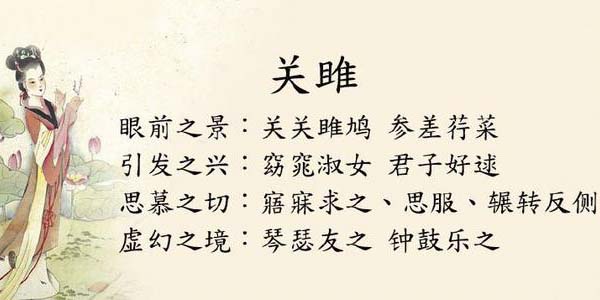 关雎
眼前之景：关关雎鸠 参差荇菜
引发之兴：窈窕淑女 君子好逑
思慕之切：寤寐求之、思服、辗转反侧
虚幻之境：琴瑟友之 钟鼓乐之